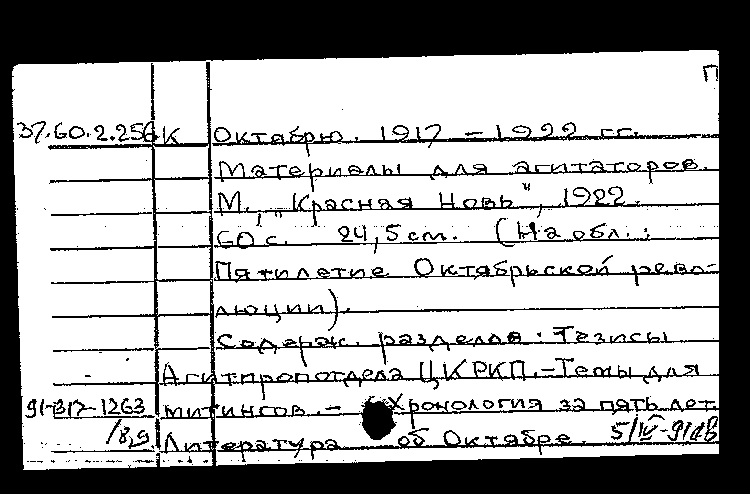 П
37.60.2.256 К Октябрю. 1917 - 1922 гг.
Материалы для агитаторов.
М., „Красная Новь", 1922.
60 с. 24,5 см. (На обл.:
Пятилетие Октябрьской рево-
люции).
Содерж. разделов: Тезисы
Агитпропотдела ЦКРКП. - Темы для
91-В17-1263 митингов. - Хронология за пять лет.
Литература об Октябре. 5/IV-91